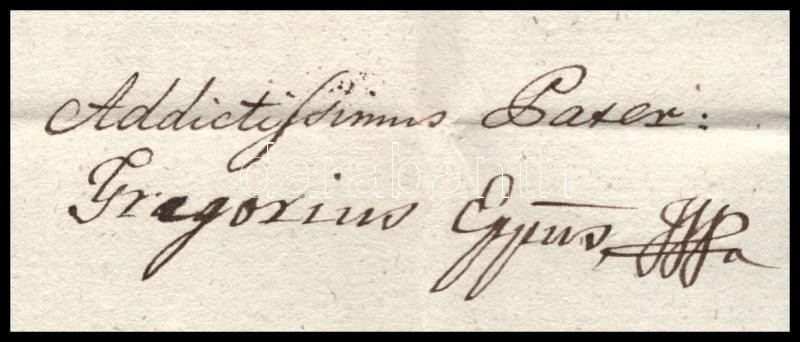 Addictissimus Pater:
Gregorius Eppūs
darabanth